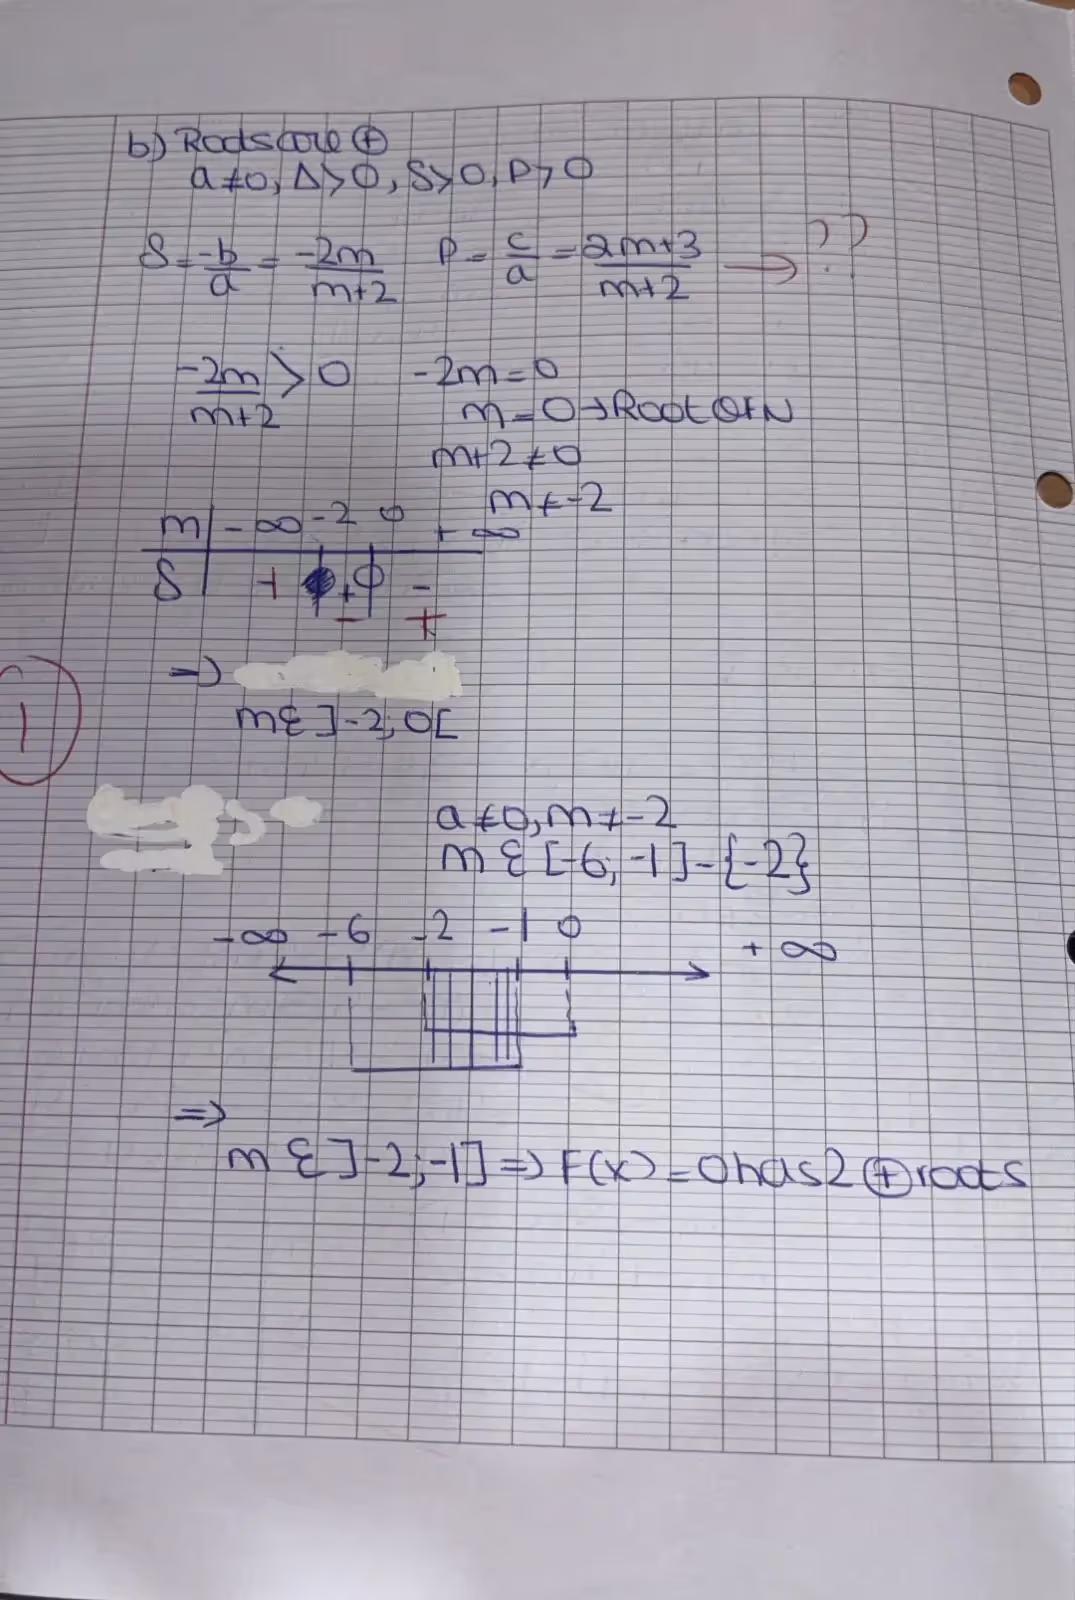 b) Roots are ⊕
a ≠ 0, Δ > 0, S > 0, P > 0
S = -b/a = -2m/m+2 P = c/a = 2m+3/m+2 → ??
-2m/m+2 > 0 -2m = 0
m = 0 → Root of N
m+2 ≠ 0
m ≠ -2
m | -∞ -2 0 +∞
S | + + 0 -
- +
⇒
m ∈ ]-2; 0[
1
a ≠ 0, m ≠ -2
m ∈ [-6; -1] - {-2}
-∞ -6 -2 -1 0 +∞
⇒
m ∈ ]-2; -1] ⇒ F(x) = 0 has 2 ⊕ roots